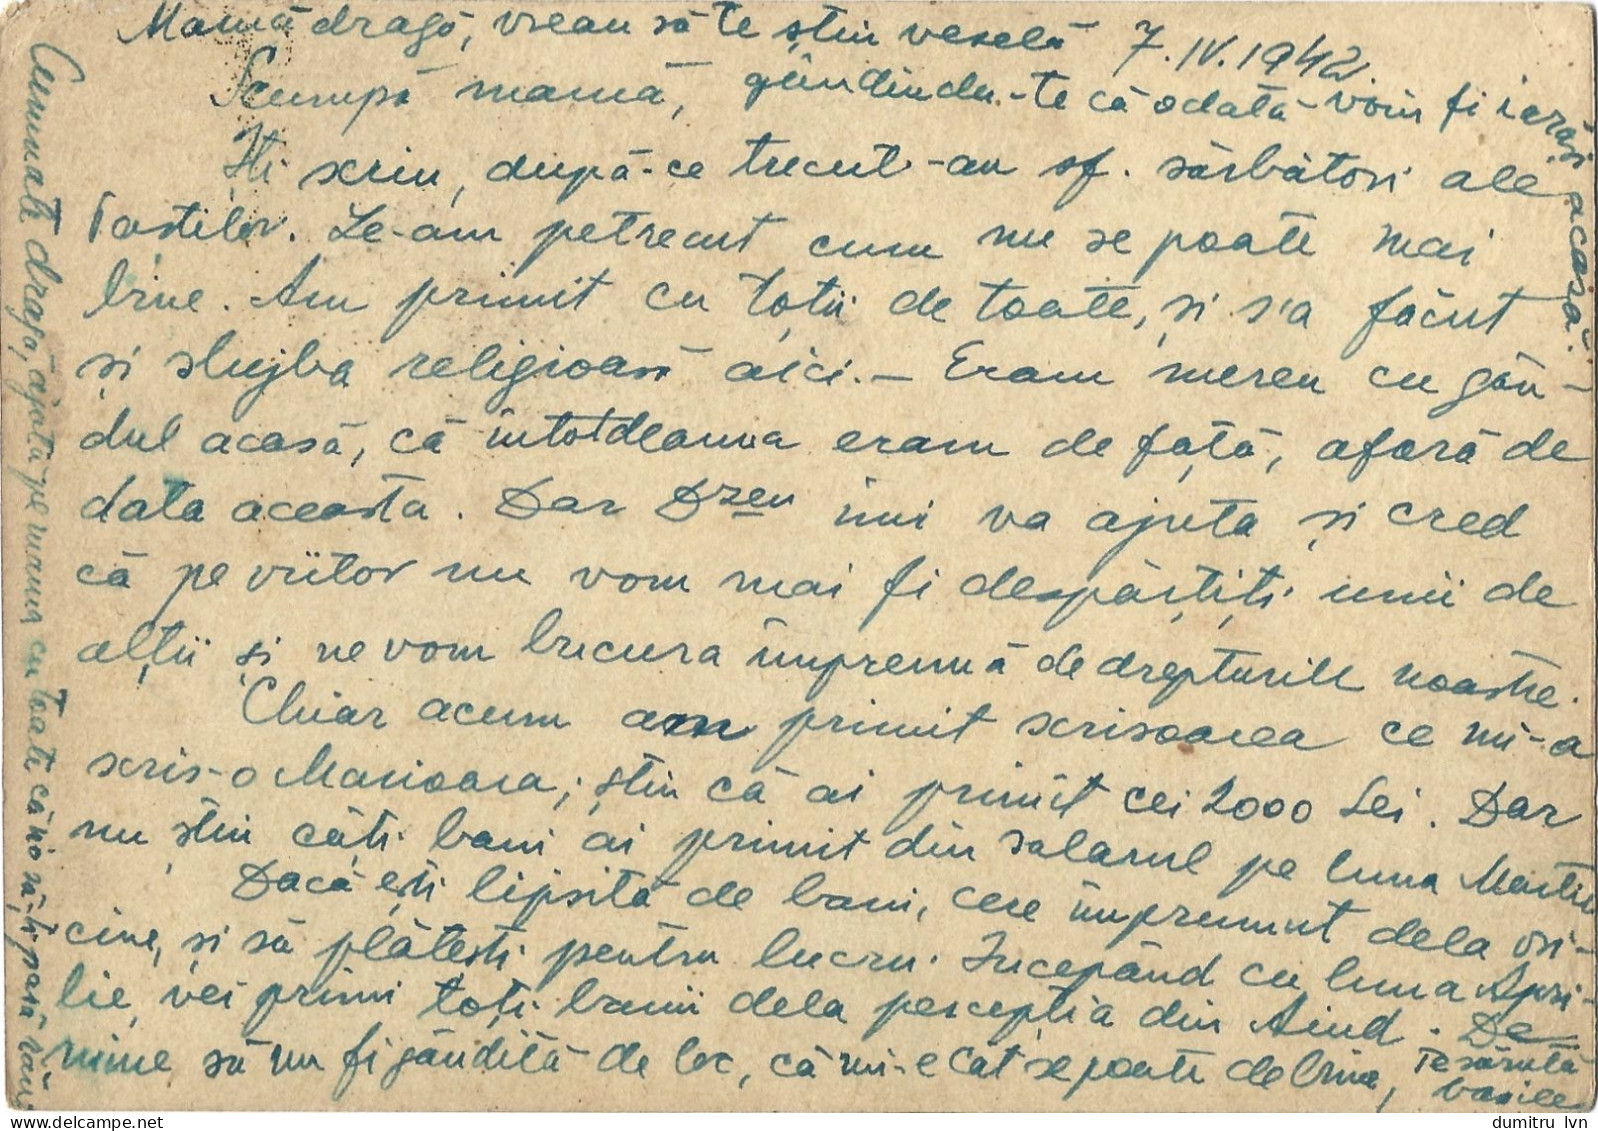 Mamă dragă, vreau să te știu veselă
7.IV.1942.
gândindu-te că odată vom fi iarăși acasă.
Scumpă mamă,
Iți scriu, după-ce trecut-au sf. sărbători ale
Paștilor. Le-am petrecut cum nu se poate mai
bine. Am primit cu toții de toate, și s'a făcut
și slujba religioasă aici.— Eram mereu cu gân-
dul acasă, că întotdeauna eram de față, afară de
data aceasta. Dar Dzeu îmi va ajuta și cred
că pe viitor nu vom mai fi despărțiți unii de
alții și ne vom bucura împreună de drepturile noastre.
Chiar acum am primit scrisoarea ce mi-a
scris-o Marioara; știu că ai primit cei 2000 Lei. Dar
nu știu câți bani ai primit din salarul pe luna Martie
Dacă ești lipsită de bani, cere împrumut dela ori-
cine, și să plătești pentru lucru. Incepând cu luna Apri-
lie, vei primi toți banii dela percepția din Aiud. De
mine să nu fi gândită de loc, că mi-e cât se poate de bine,
Te sărută
Vasile
Cumnate dragă, ajută-pe mama cu toate că nu o să-ți pară rău
dumitru lvn
www.delcampe.net